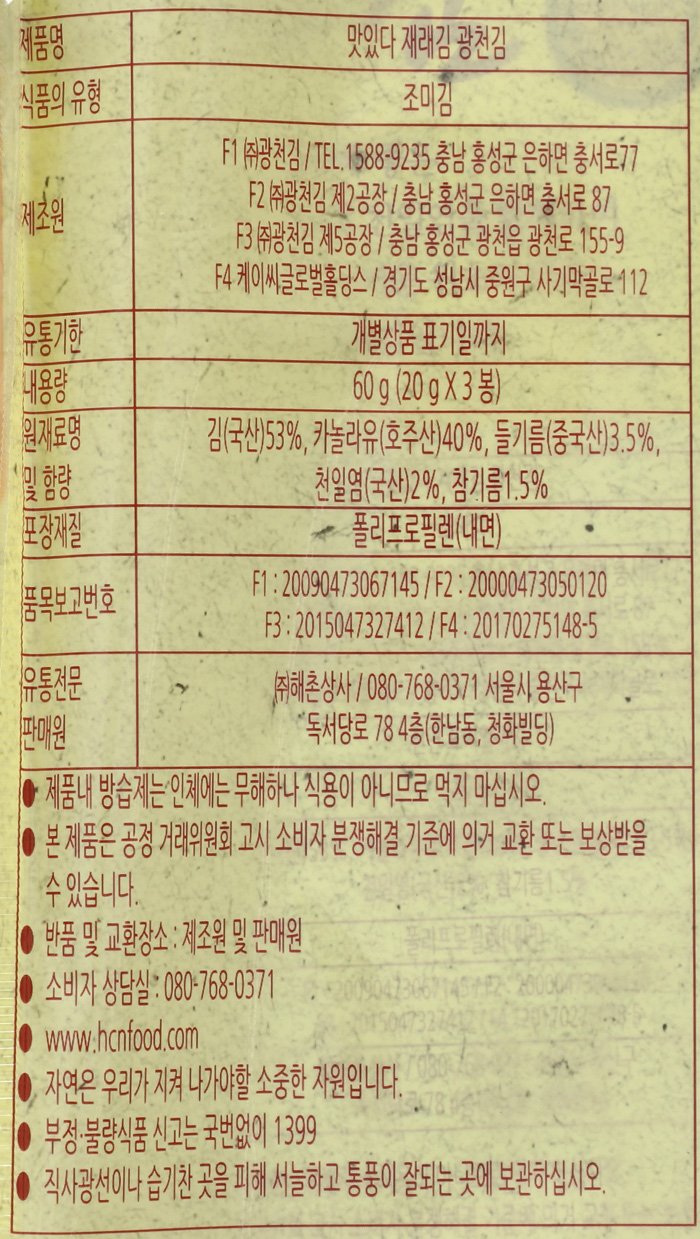 제품명 맛있다 재래김 광천김
식품의 유형 조미김
제조원
F1 ㈜광천김 / TEL.1588-9235 충남 홍성군 은하면 충서로77
F2 ㈜광천김 제2공장 / 충남 홍성군 은하면 충서로 87
F3 ㈜광천김 제5공장 / 충남 홍성군 광천읍 광천로 155-9
F4 케이씨글로벌홀딩스 / 경기도 성남시 중원구 사기막골로 112
유통기한 개별상품 표기일까지
내용량 60 g (20 g X 3 봉)
원재료명 김(국산)53%, 카놀라유(호주산)40%, 들기름(중국산)3.5%,
및 함량 천일염(국산)2%, 참기름1.5%
포장재질 폴리프로필렌(내면)
품목보고번호
F1 : 20090473067145 / F2 : 20000473050120
F3 : 2015047327412 / F4 : 20170275148-5
유통전문 ㈜해촌상사 / 080-768-0371 서울시 용산구
판매원 독서당로 78 4층(한남동, 청화빌딩)
● 제품내 방습제는 인체에는 무해하나 식용이 아니므로 먹지 마십시오.
● 본 제품은 공정 거래위원회 고시 소비자 분쟁해결 기준에 의거 교환 또는 보상받을
수 있습니다.
● 반품 및 교환장소 : 제조원 및 판매원
● 소비자 상담실 : 080-768-0371
● www.hcnfood.com
● 자연은 우리가 지켜 나가야할 소중한 자원입니다.
● 부정·불량식품 신고는 국번없이 1399
● 직사광선이나 습기찬 곳을 피해 서늘하고 통풍이 잘되는 곳에 보관하십시오.